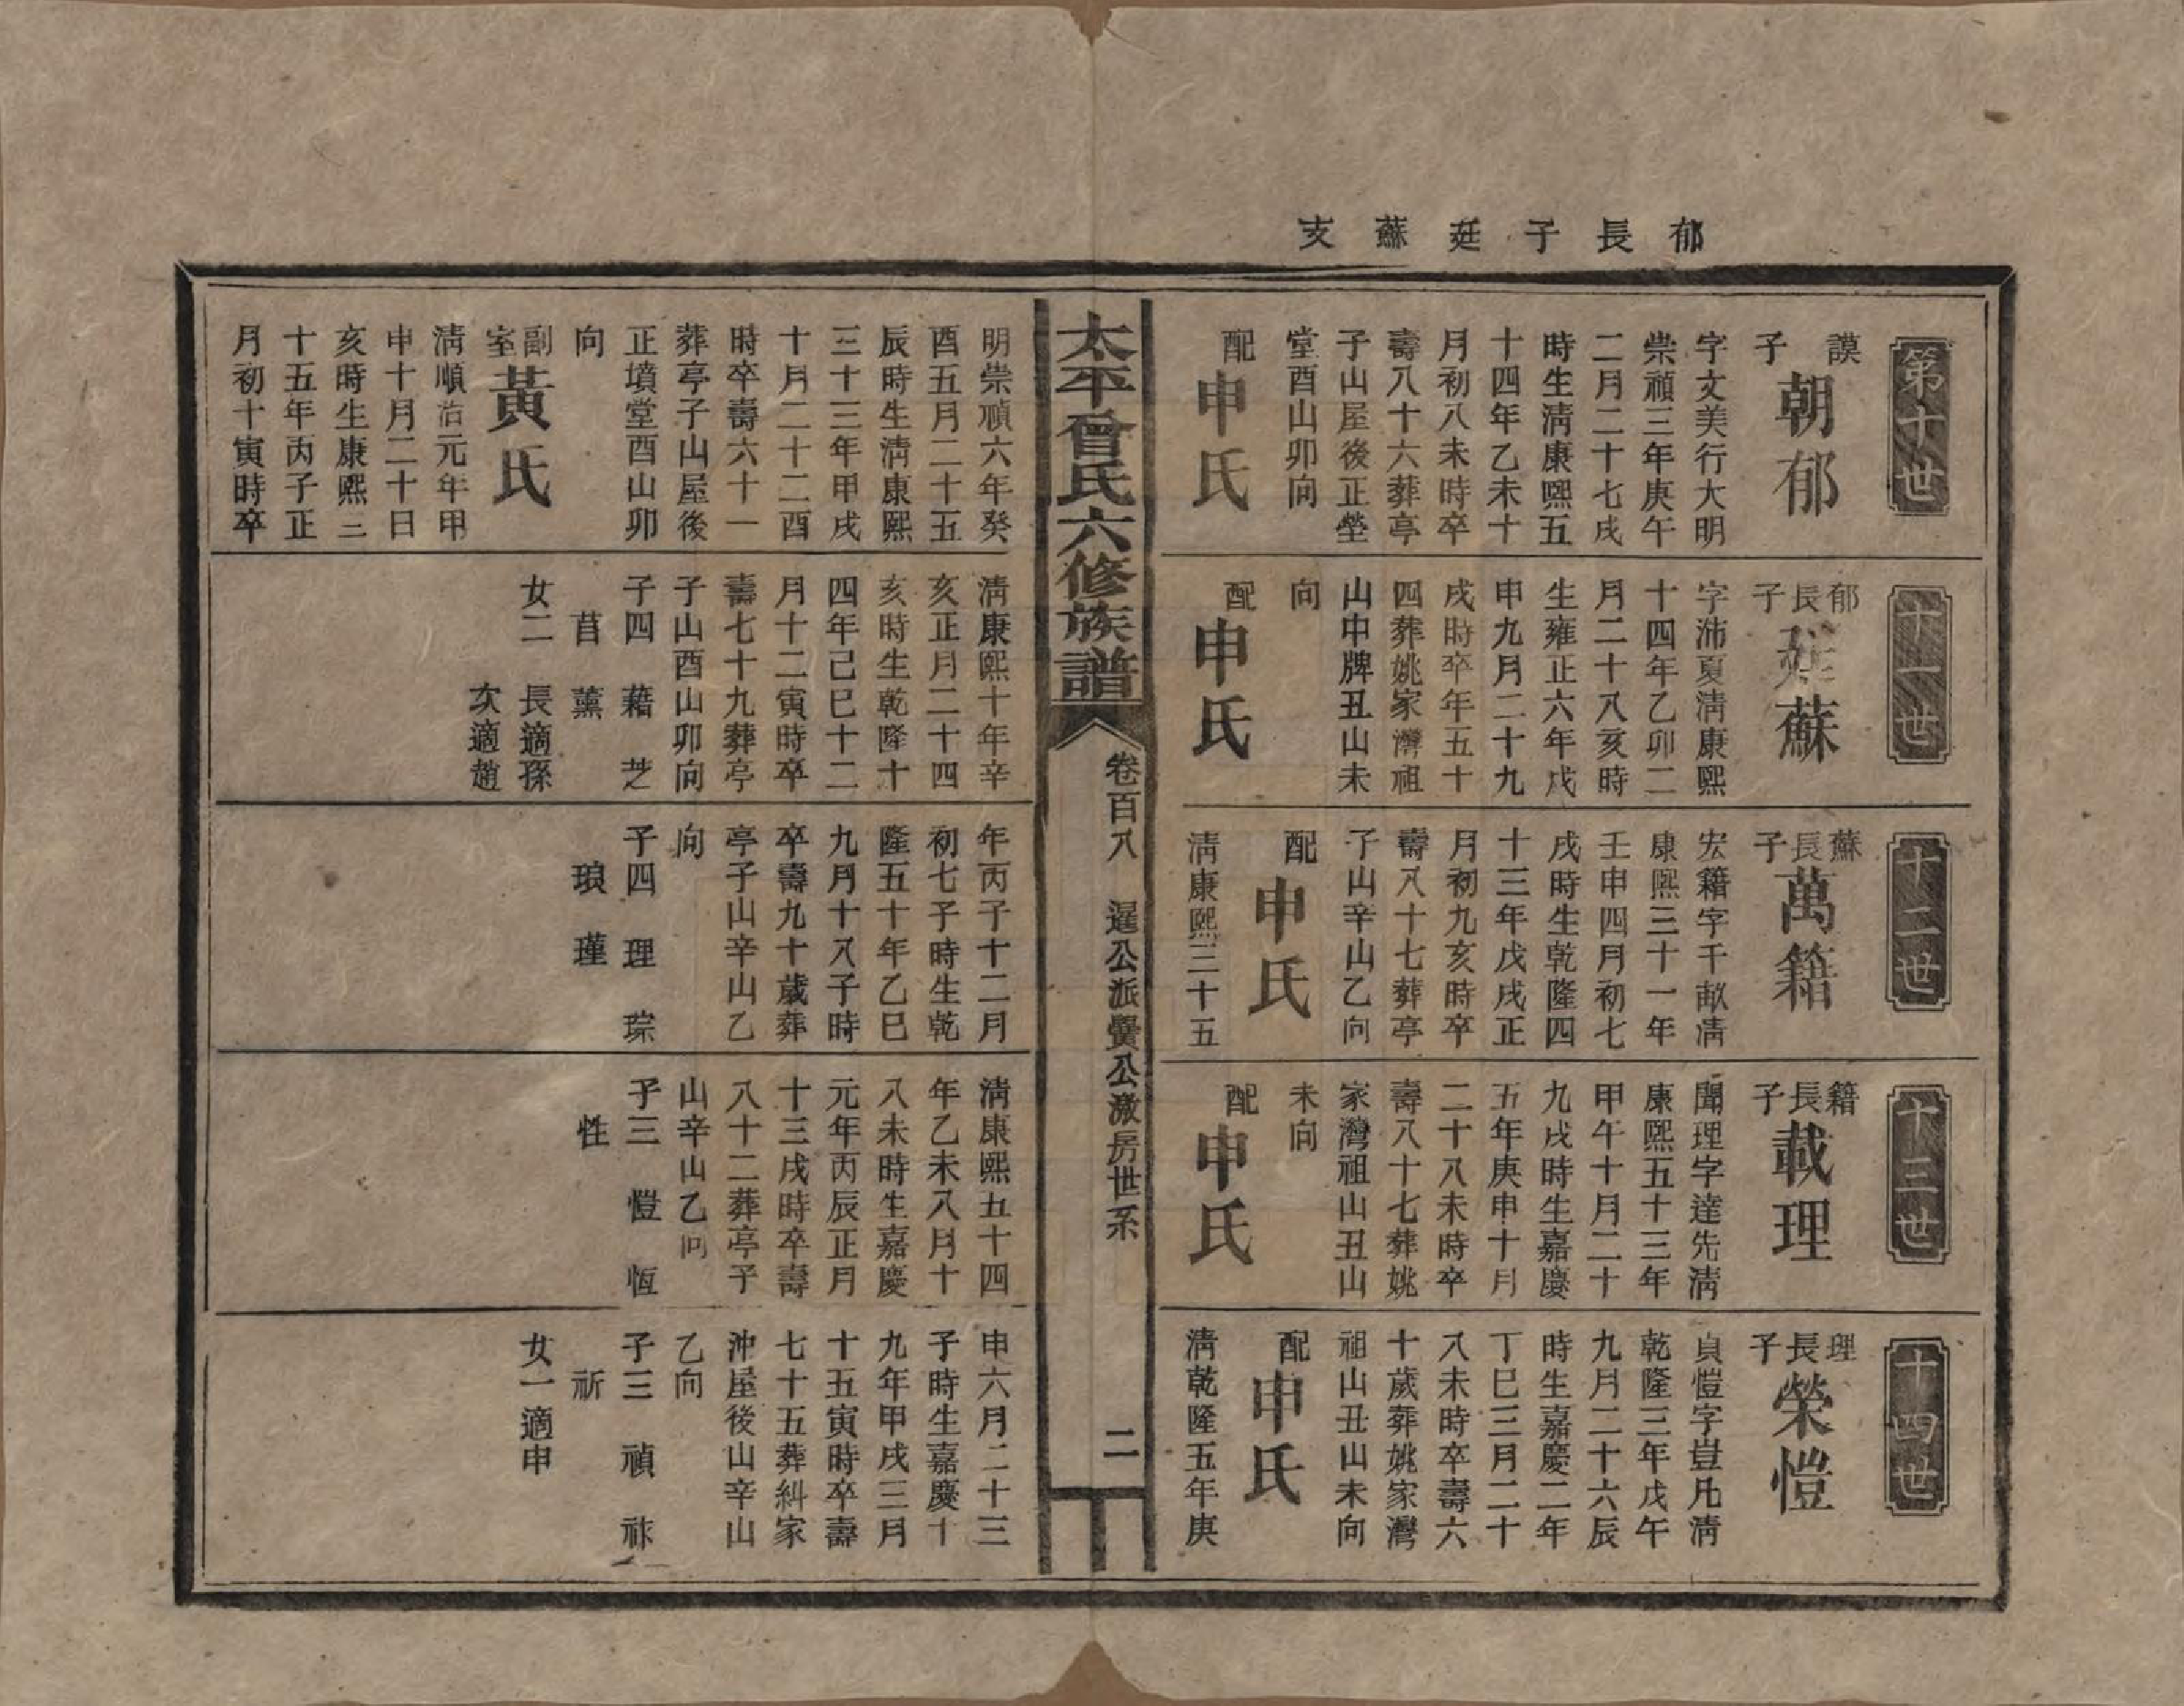 郁長子廷蘇支
第十世
謨子朝郁
字文美行大明
崇禎三年庚午
二月二十七戌
時生淸康熙五
十四年乙未十
月初八未時卒
壽八十六葬亭
子山屋後正塋
堂酉山卯向
配申氏
明崇禎六年癸
酉五月二十五
辰時生淸康熙
三十三年甲戌
十月二十二酉
時卒壽六十一
葬亭子山屋後
正墳堂酉山卯
向
副室黃氏
淸順治元年甲
申十月二十日
亥時生康熙三
十五年丙子正
月初十寅時卒
十一世
郁長子廷蘇
字沛夏淸康熙
十四年乙卯二
月二十八亥時
生雍正六年戊
申九月二十九
戌時卒年五十
四葬姚家灣祖
山中牌丑山未
向
配申氏
淸康熙十年辛
亥正月二十四
亥時生乾隆十
四年己巳十二
月十二寅時卒
壽七十九葬亭
子山酉山卯向
子四 藉 芝
苢 薰
女二 長適孫
次適趙
十二世
蘇長子萬籍
宏籍字千畝淸
康熙三十一年
壬申四月初七
戌時生乾隆四
十三年戊戌正
月初九亥時卒
壽八十七葬亭
子山辛山乙向
配申氏
淸康熙三十五
年丙子十二月
初七子時生乾
隆五十年乙巳
九月十八子時
卒壽九十歲葬
亭子山辛山乙
向
子四 理 琮
琅 瑾
十三世
籍長子載理
聞理字達先淸
康熙五十三年
甲午十月二十
九戌時生嘉慶
五年庚申十月
二十八未時卒
壽八十七葬姚
家灣祖山丑山
未向
配申氏
淸康熙五十四
年乙未八月十
八未時生嘉慶
元年丙辰正月
十三戌時卒壽
八十二葬亭子
山辛山乙向
子三 愷 恆
性
十四世
理長子榮愷
貞愷字豈凡淸
乾隆三年戊午
九月二十六辰
時生嘉慶二年
丁巳三月二十
八未時卒壽六
十歲葬姚家灣
祖山丑山未向
配申氏
淸乾隆五年庚
申六月二十三
子時生嘉慶十
九年甲戌三月
十五寅時卒壽
七十五葬糾家
沖屋後山辛山
乙向
子三 禎 祩
祈
女一適申
太平曾氏六修族譜
卷百八 暹公派釁公激房世系
二